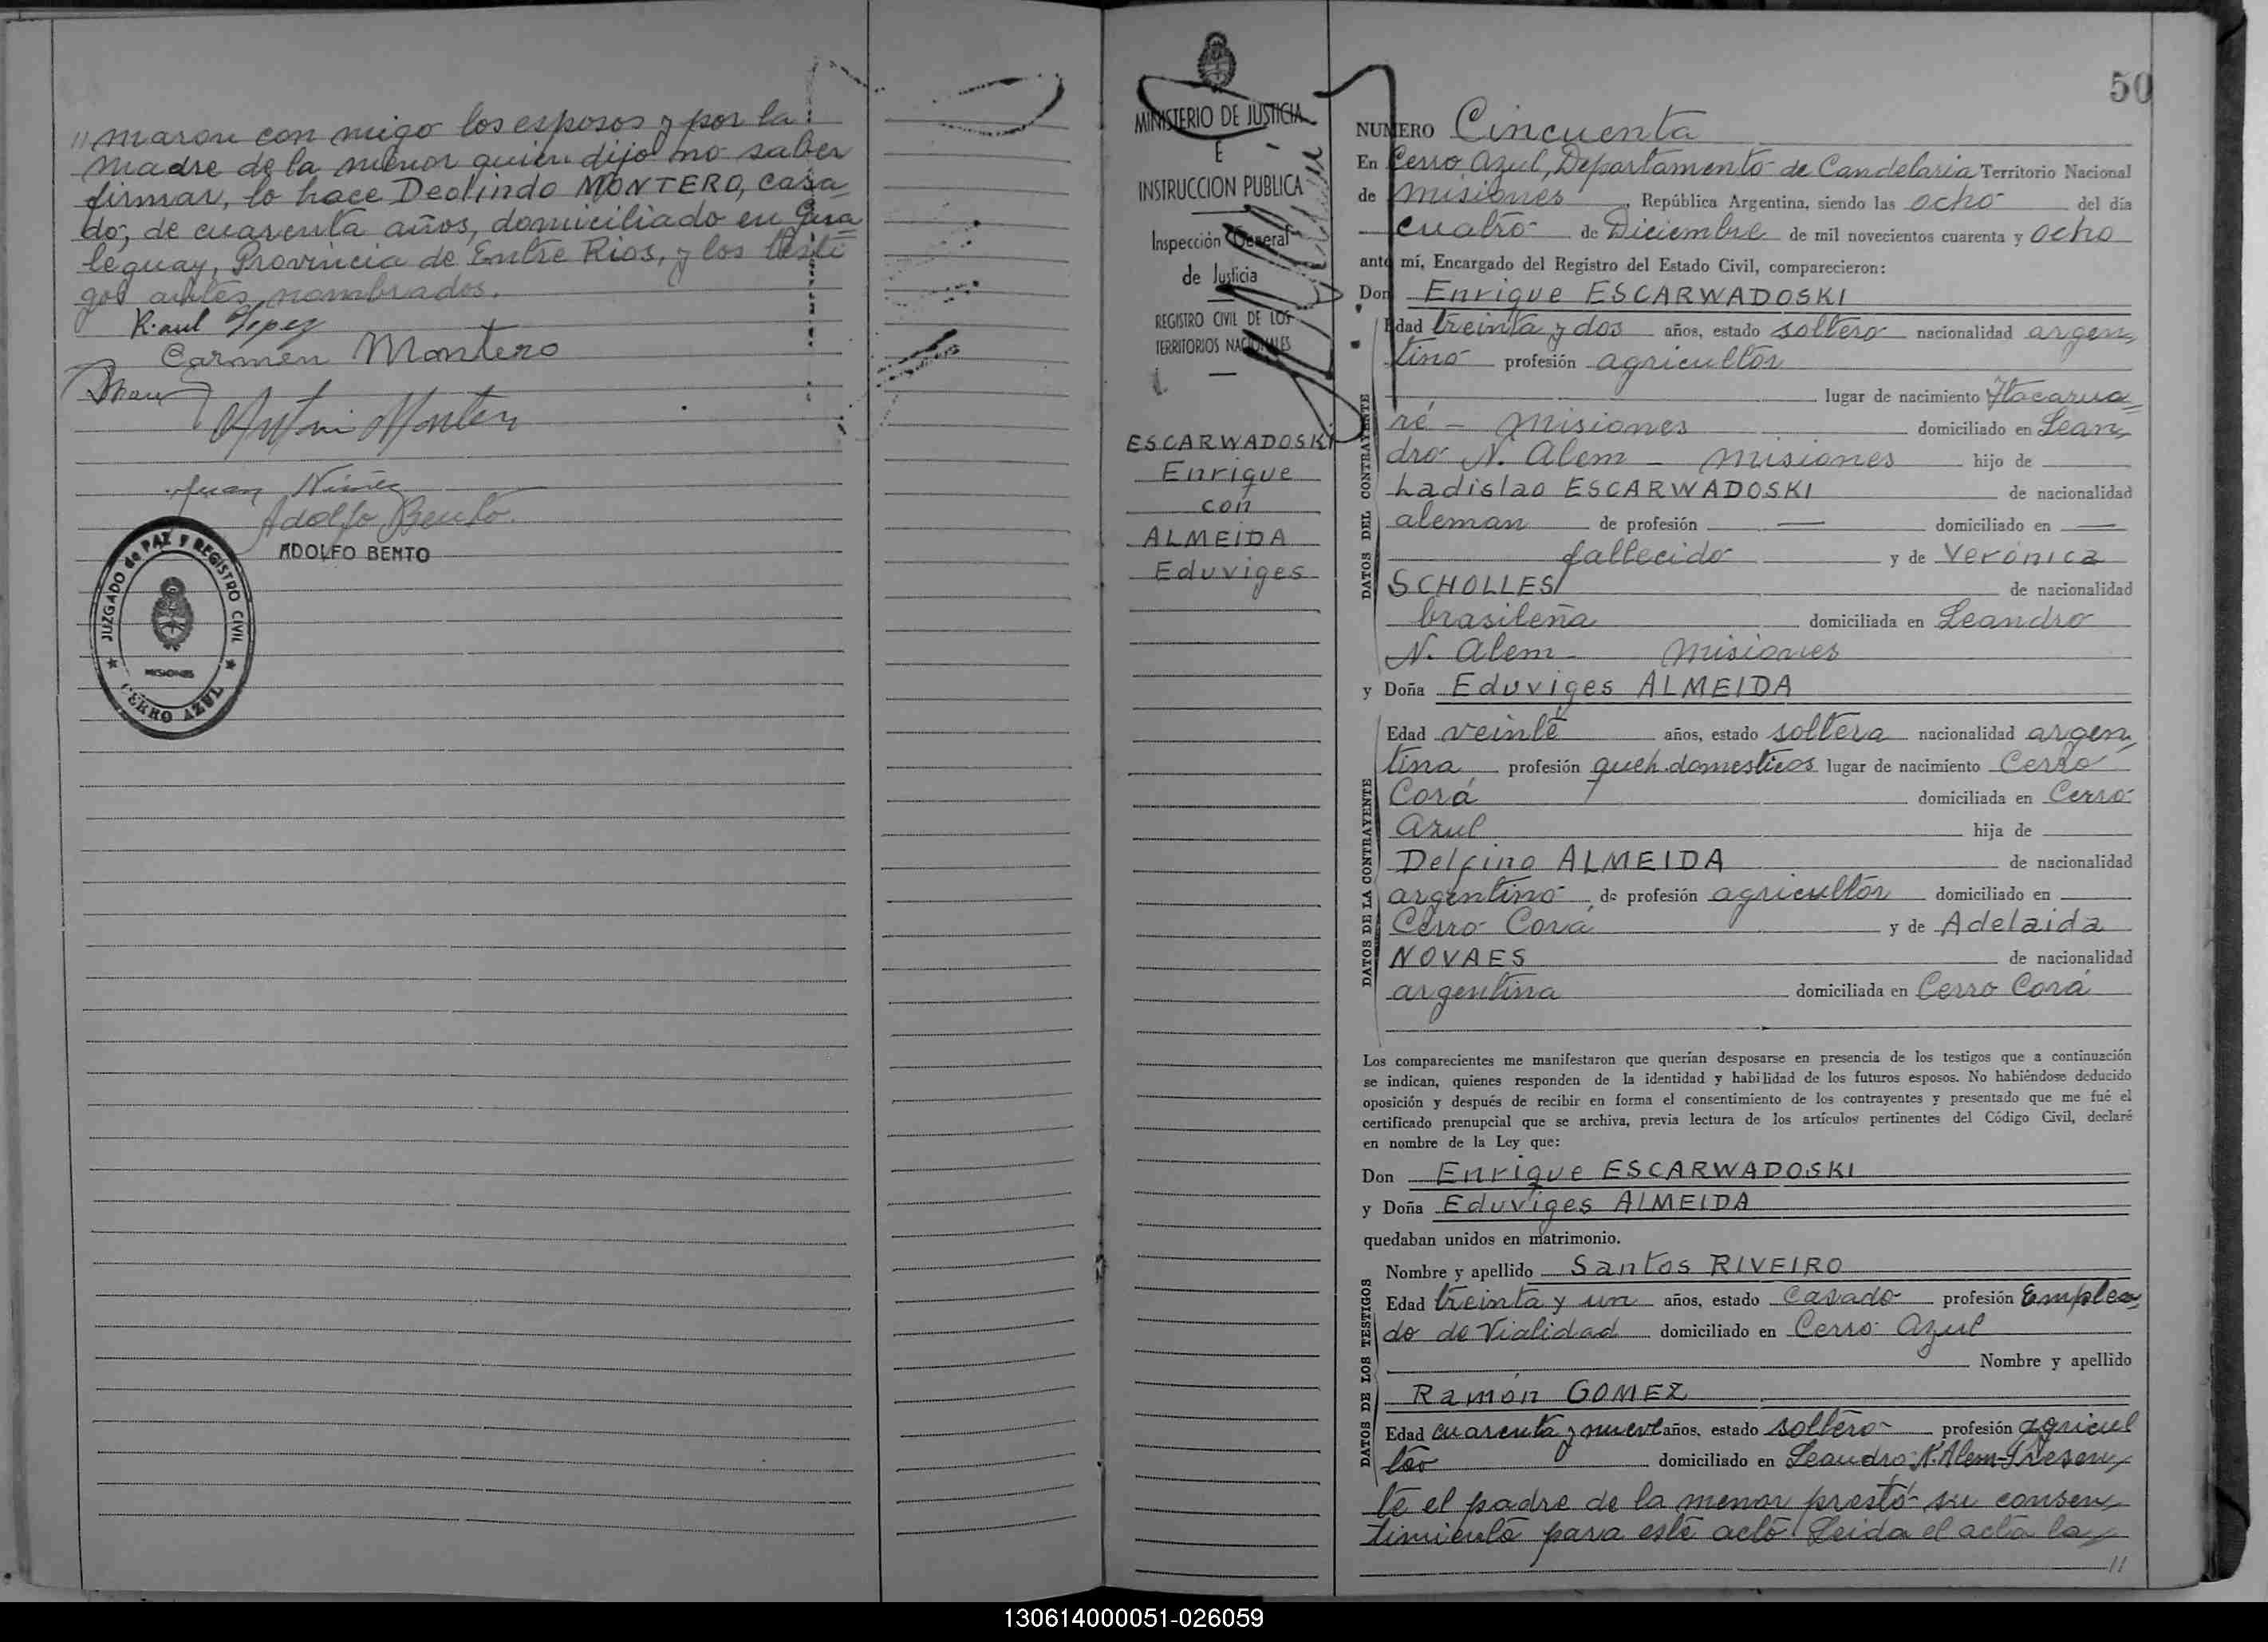 "maron con migo los esposos y por la
madre de la menor quien dijo no saber
firmar, lo hace Deolindo MONTERO, casa
do, de cuarenta años, domiciliado en Gua
leguay, Provincia de Entre Rios, y los testi
gos antes nombrados.
Raul Yepez
Carmen Montero
Juan Núñez
Adolfo Bento
ADOLFO BENTO
JUZGADO de PAZ Y REGISTRO CIVIL
MISIONES
CERRO AZUL
MINISTERIO DE JUSTICIA
E
INSTRUCCION PUBLICA
Inspección General
de Justicia
REGISTRO CIVIL DE LOS
TERRITORIOS NACIONALES
ESCARWADOSKI
Enrique
con
ALMEIDA
Eduviges
50
NUMERO Cincuenta
En Cerro Azul, Departamento de Candelaria Territorio Nacional
de Misiones, República Argentina, siendo las ocho del día
cuatro de Diciembre de mil novecientos cuarenta y ocho
ante mí, Encargado del Registro del Estado Civil, comparecieron:
Don Enrique ESCARWADOSKI
DATOS DEL CONTRAYENTE
Edad treinta y dos años, estado soltero nacionalidad argen
tino profesión agricultor
lugar de nacimiento Itacarua
ré - Misiones domiciliado en Lean
dro N. Alem - Misiones hijo de
Ladislao ESCARWADOSKI de nacionalidad
aleman de profesión — domiciliado en —
fallecido y de Verónica
SCHOLLES de nacionalidad
brasileña domiciliada en Leandro
N. Alem - Misiones
y Doña Eduviges ALMEIDA
DATOS DE LA CONTRAYENTE
Edad veinte años, estado soltera nacionalidad argen
tina profesión queh. domesticos lugar de nacimiento Cerro
Corá domiciliada en Cerro
Azul hija de
Delfino ALMEIDA de nacionalidad
argentino de profesión agricultor domiciliado en
Cerro Corá y de Adelaida
NOVAES de nacionalidad
argentina domiciliada en Cerro Corá
Los comparecientes me manifestaron que querían desposarse en presencia de los testigos que a continuación
se indican, quienes responden de la identidad y habilidad de los futuros esposos. No habiéndose deducido
oposición y después de recibir en forma el consentimiento de los contrayentes y presentado que me fué el
certificado prenupcial que se archiva, previa lectura de los artículos pertinentes del Código Civil, declaré
en nombre de la Ley que:
Don Enrique ESCARWADOSKI
y Doña Eduviges ALMEIDA
quedaban unidos en matrimonio.
DATOS DE LOS TESTIGOS
Nombre y apellido Santos RIVEIRO
Edad treinta y un años, estado casado profesión Emplea
do de Vialidad domiciliado en Cerro Azul
Nombre y apellido
Ramón GOMEZ
Edad cuarenta y nueve años, estado soltero profesión agricul
tor domiciliado en Leandro N. Alem-Presen
te el padre de la menor prestó su consen
timiento para este acto. Leida el acta la
"
130614000051-026059